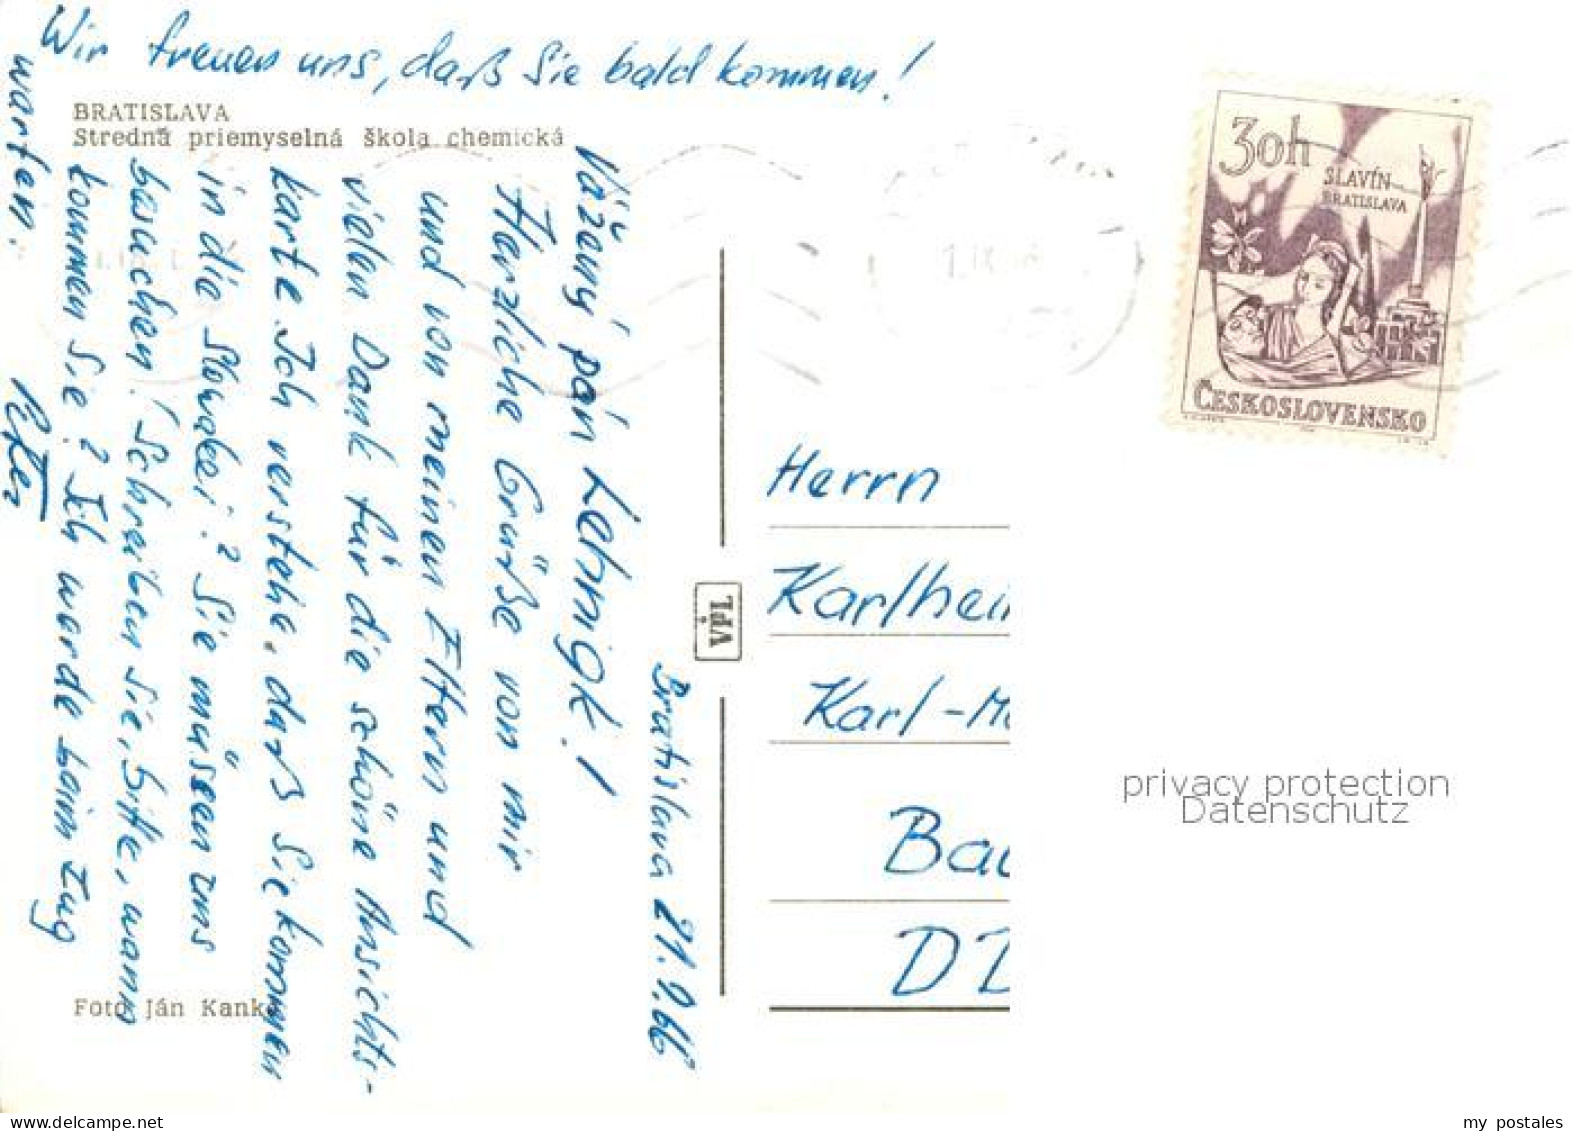 Wir freuen uns, daß Sie bald kommen!
BRATISLAVA
Stredná priemyselná škola chemická
Bratislava 21.9.66
Vážený pán Lehnigk!
Herzliche Grüße von mir
und von meinen Eltern und
vielen Dank für die schöne Ansichts-
karte. Ich verstehe, daß Sie kommen
in die Slowakei? Sie müssen uns
besuchen! Schreiben Sie, bitte, wann
kommen Sie? Ich werde beim Zug
warten.
Peter
Foto Ján Kanka
VPL
30h
SLAVÍN
BRATISLAVA
ČESKOSLOVENSKO
Herrn
Karlhei
Karl-M
Ba
D
privacy protection
Datenschutz
my postales
www.delcampe.net